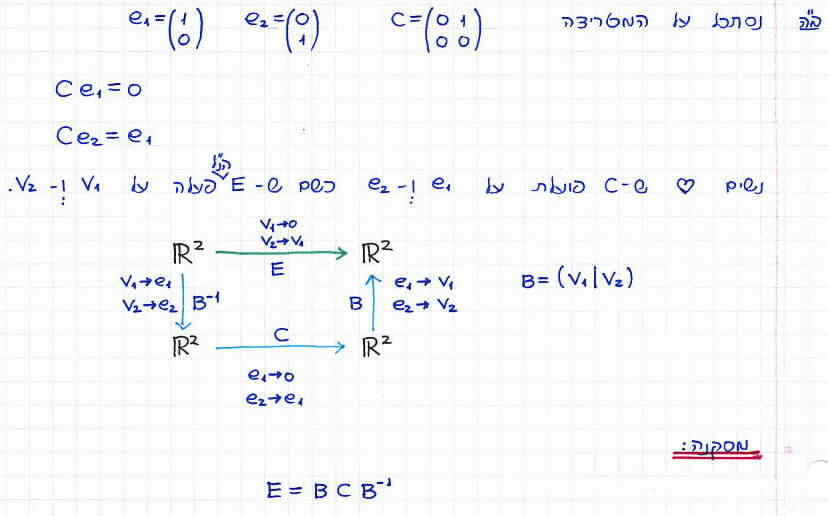 נסתכל על המטריצה C = (0 1 / 0 0) e₂ = (0 / 1) e₁ = (1 / 0)
C e₁ = 0
C e₂ = e₁
נשים ♡ ש-C פועלת על e₁ ו- e₂ כשם ש- E הנ"ל פעלה על V₁ ו- V₂.
V₁→0
V₂→V₁
ℝ² → ℝ²
E
V₁→e₁
V₂→e₂ B⁻¹
B e₁→V₁
e₂→V₂
B = (V₁|V₂)
ℝ² C → ℝ²
e₁→0
e₂→e₁
מסקנה:
E = B C B⁻¹